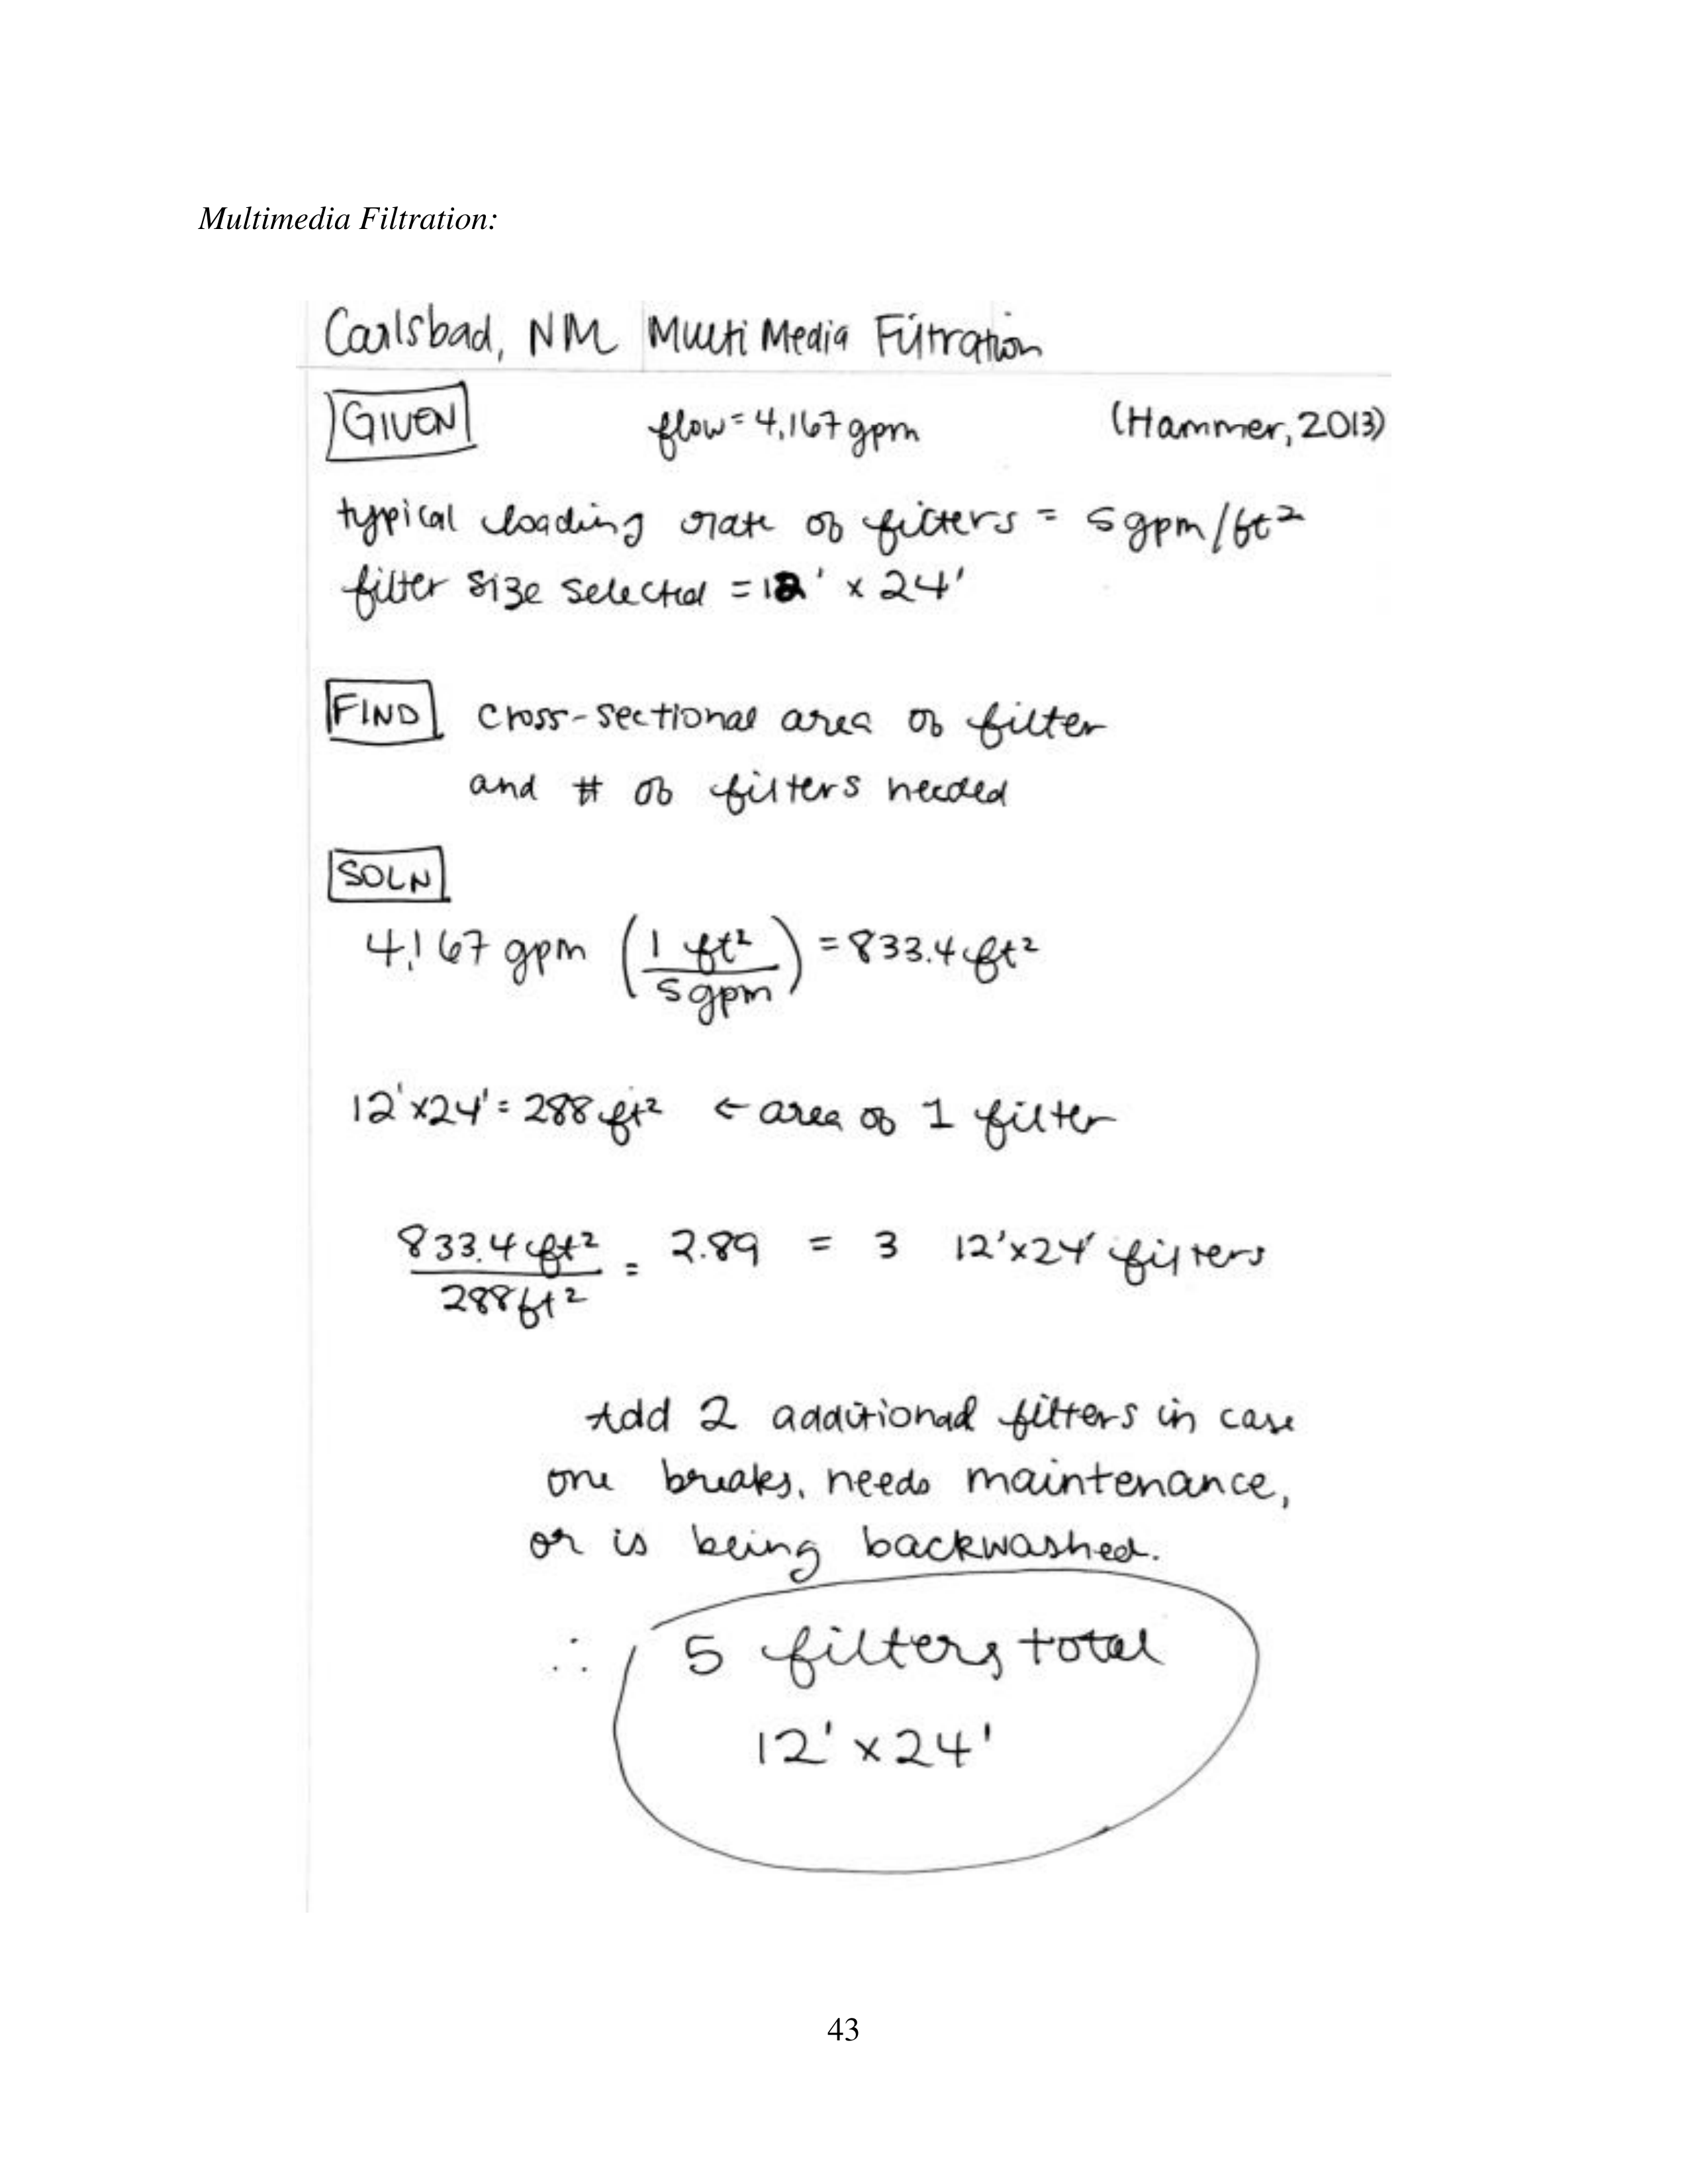 Multimedia Filtration:
Carlsbad, NM Multi Media Filtration
GIVEN flow = 4,167 gpm (Hammer, 2013)
typical loading rate of filters = 5 gpm/ft²
filter size selected = 12' x 24'
FIND cross-sectional area of filter
and # of filters needed
SOLN
4,167 gpm (1 ft² / 5 gpm) = 833.4 ft²
12' x 24' = 288 ft² ← area of 1 filter
833.4 ft² / 288 ft² = 2.89 = 3 12' x 24' filters
Add 2 additional filters in case
one breaks, needs maintenance,
or is being backwashed.
∴ 5 filters total
12' x 24'
43